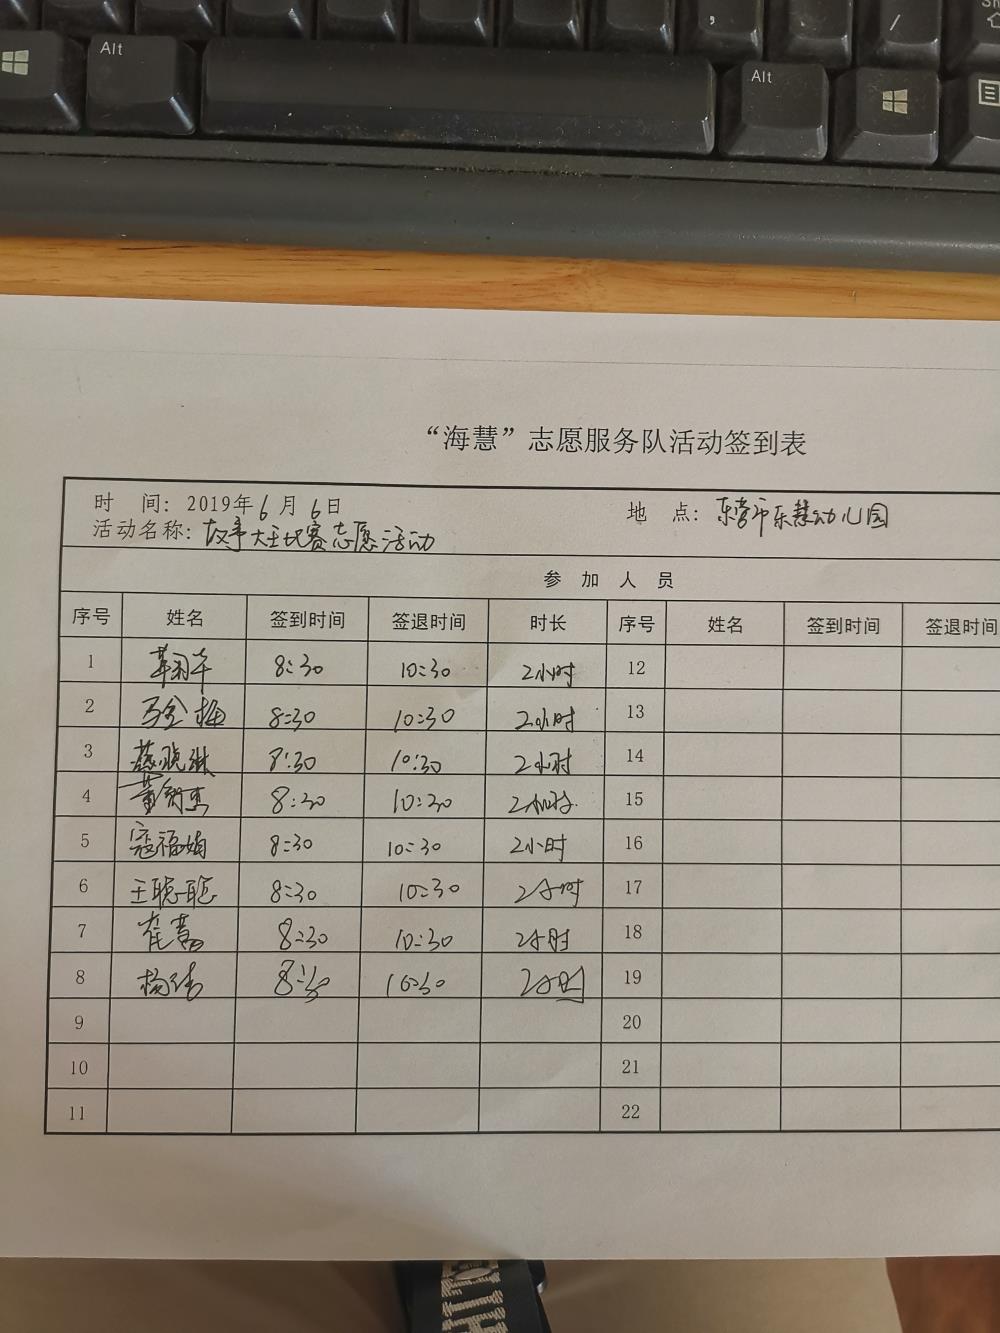 Alt
Alt
“海慧”志愿服务队活动签到表
时 间: 2019年6月6日 地 点: 东营市乐慧幼儿园
活动名称: 故事大王比赛志愿活动
参 加 人 员
序号 姓名 签到时间 签退时间 时长 序号 姓名 签到时间 签退时间
1 8:30 10:30 2小时 12
2 马金梅 8:30 10:30 2小时 13
3 蔡晓琳 8:30 10:30 2小时 14
4 8:30 10:30 2小时 15
5 寇福娟 8:30 10:30 2小时 16
6 王聪聪 8:30 10:30 2小时 17
7 8:30 10:30 2小时 18
8 8:30 10:30 2小时 19
9 20
10 21
11 22